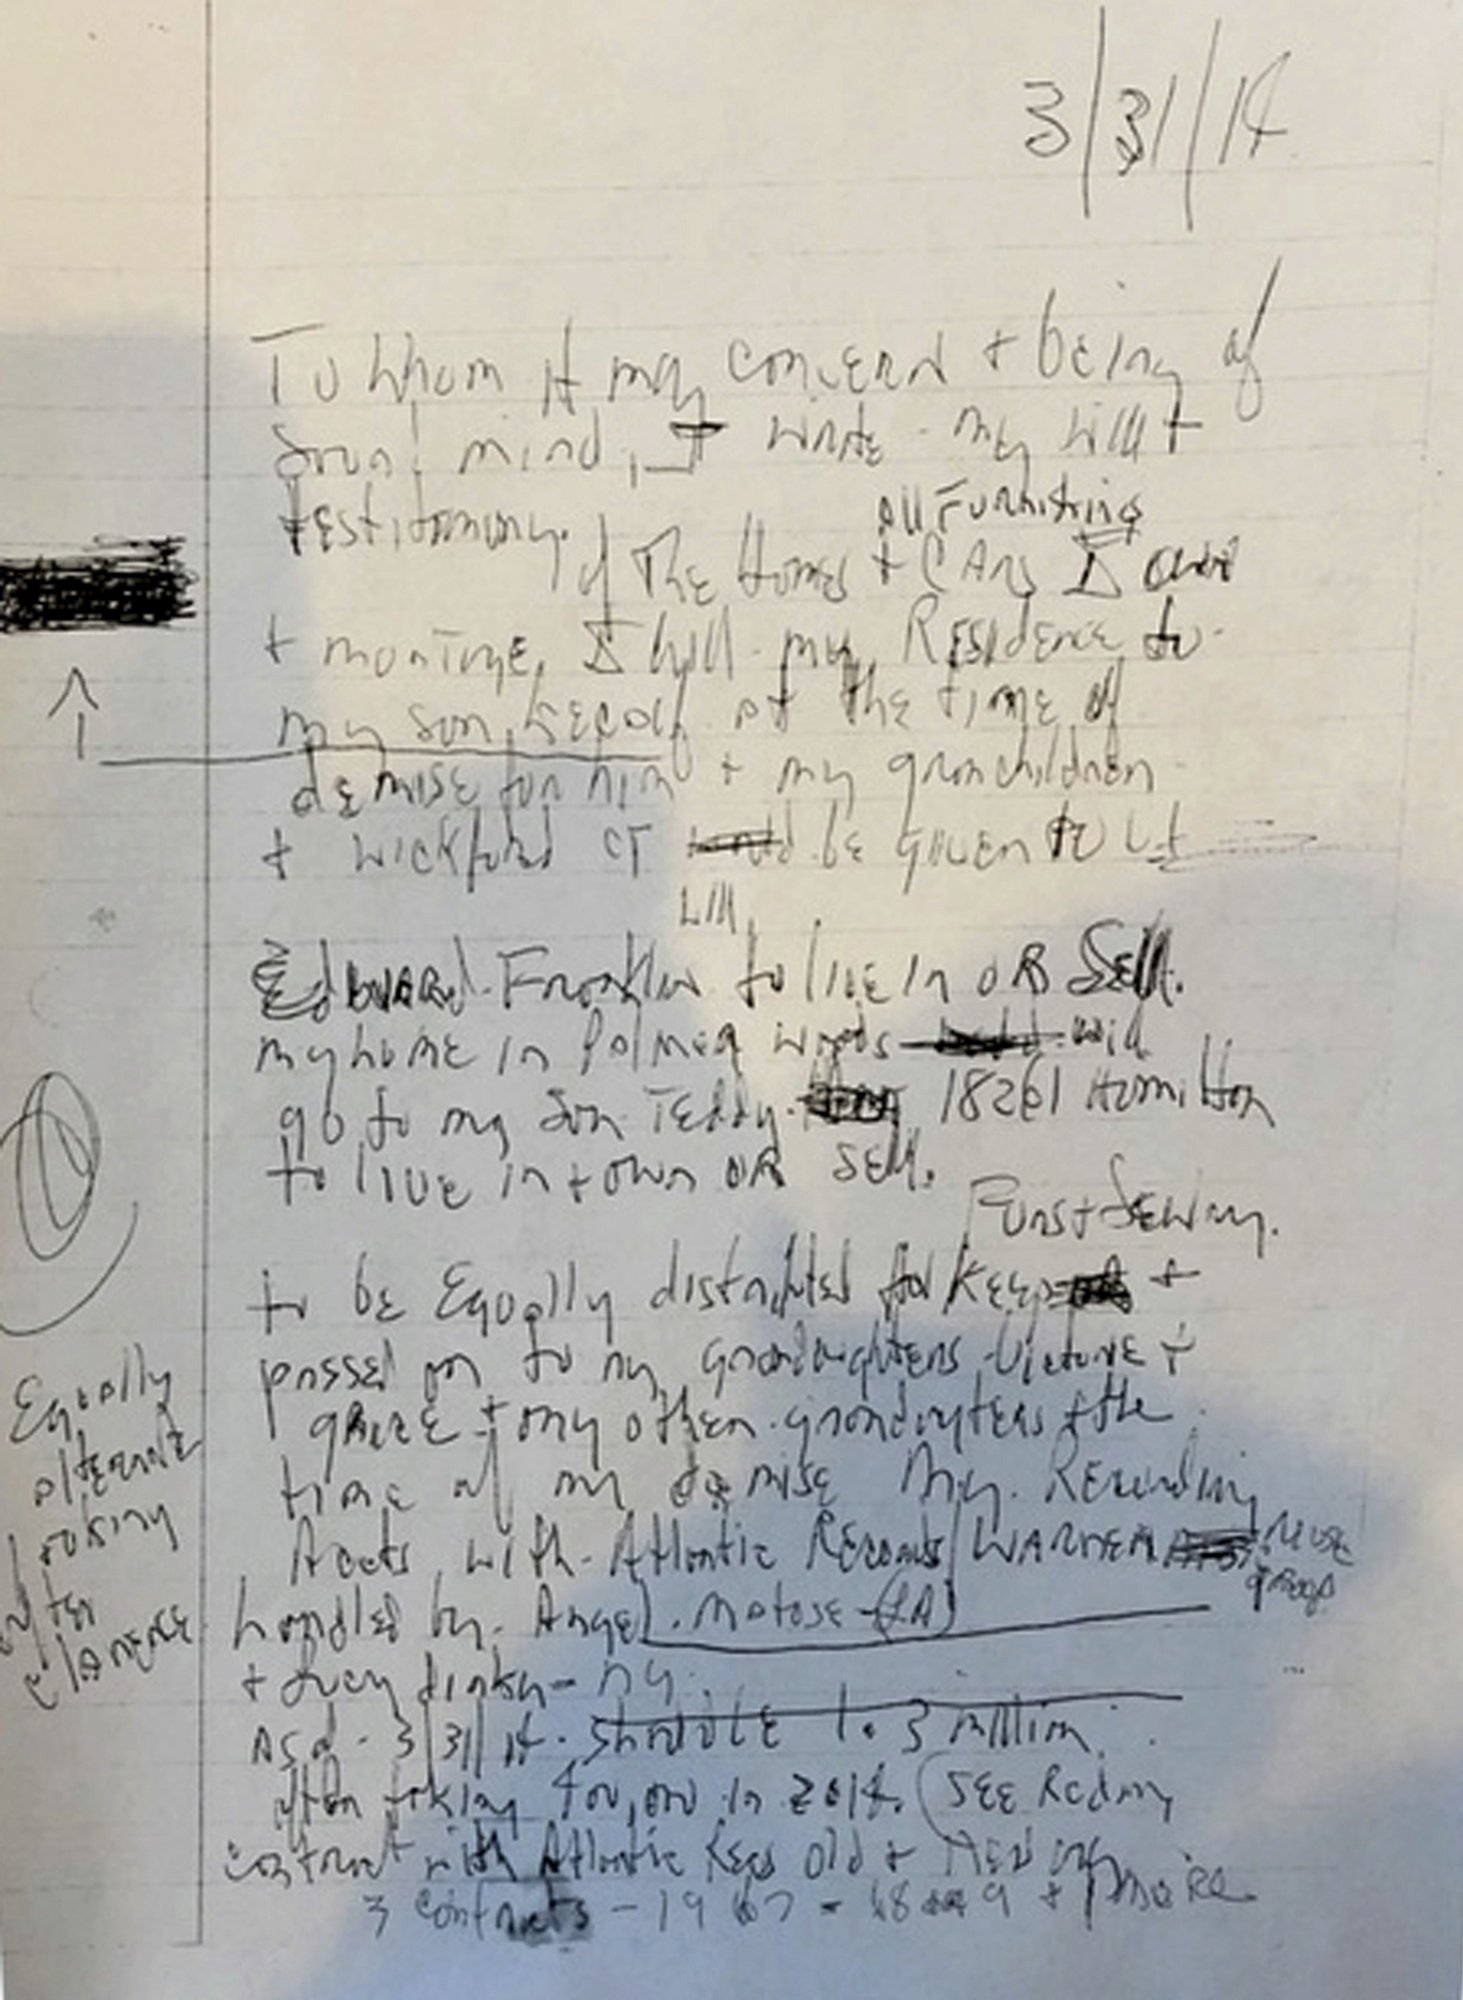 3/31/14
To Whom it may concern + being of
sound mind, I write my will +
testitomony.
All Furnishing
Of The Homes + CARs I own
+ mortgage, I will my Residence to
my son, Kecalf at the time of
demise for him + my granchildren
+ Wickford CT be given to
Will
Edward Franklin to live in OR Sell.
my home in Palmer Woods will
go to my son Teddy. 18261 Hamilton
to live in + own OR Sell.
Furs + Jewlry.
to be Equally distributed for Keep +
passed on to my grandaughters Victorie +
grace + any other grandaughters + the
time of my demise My Recording
Accts with Atlantic Records/WARNER Music
group
handled by Angel
(LA)
+ NY.
As of 3/31/14 Should be 1.3 million
after taking 400,000 in 2014. (SEE
contract with Atlantic Recs Old + New
3 contracts - 1967 + more
Equally
alternate
taking
after
clarence